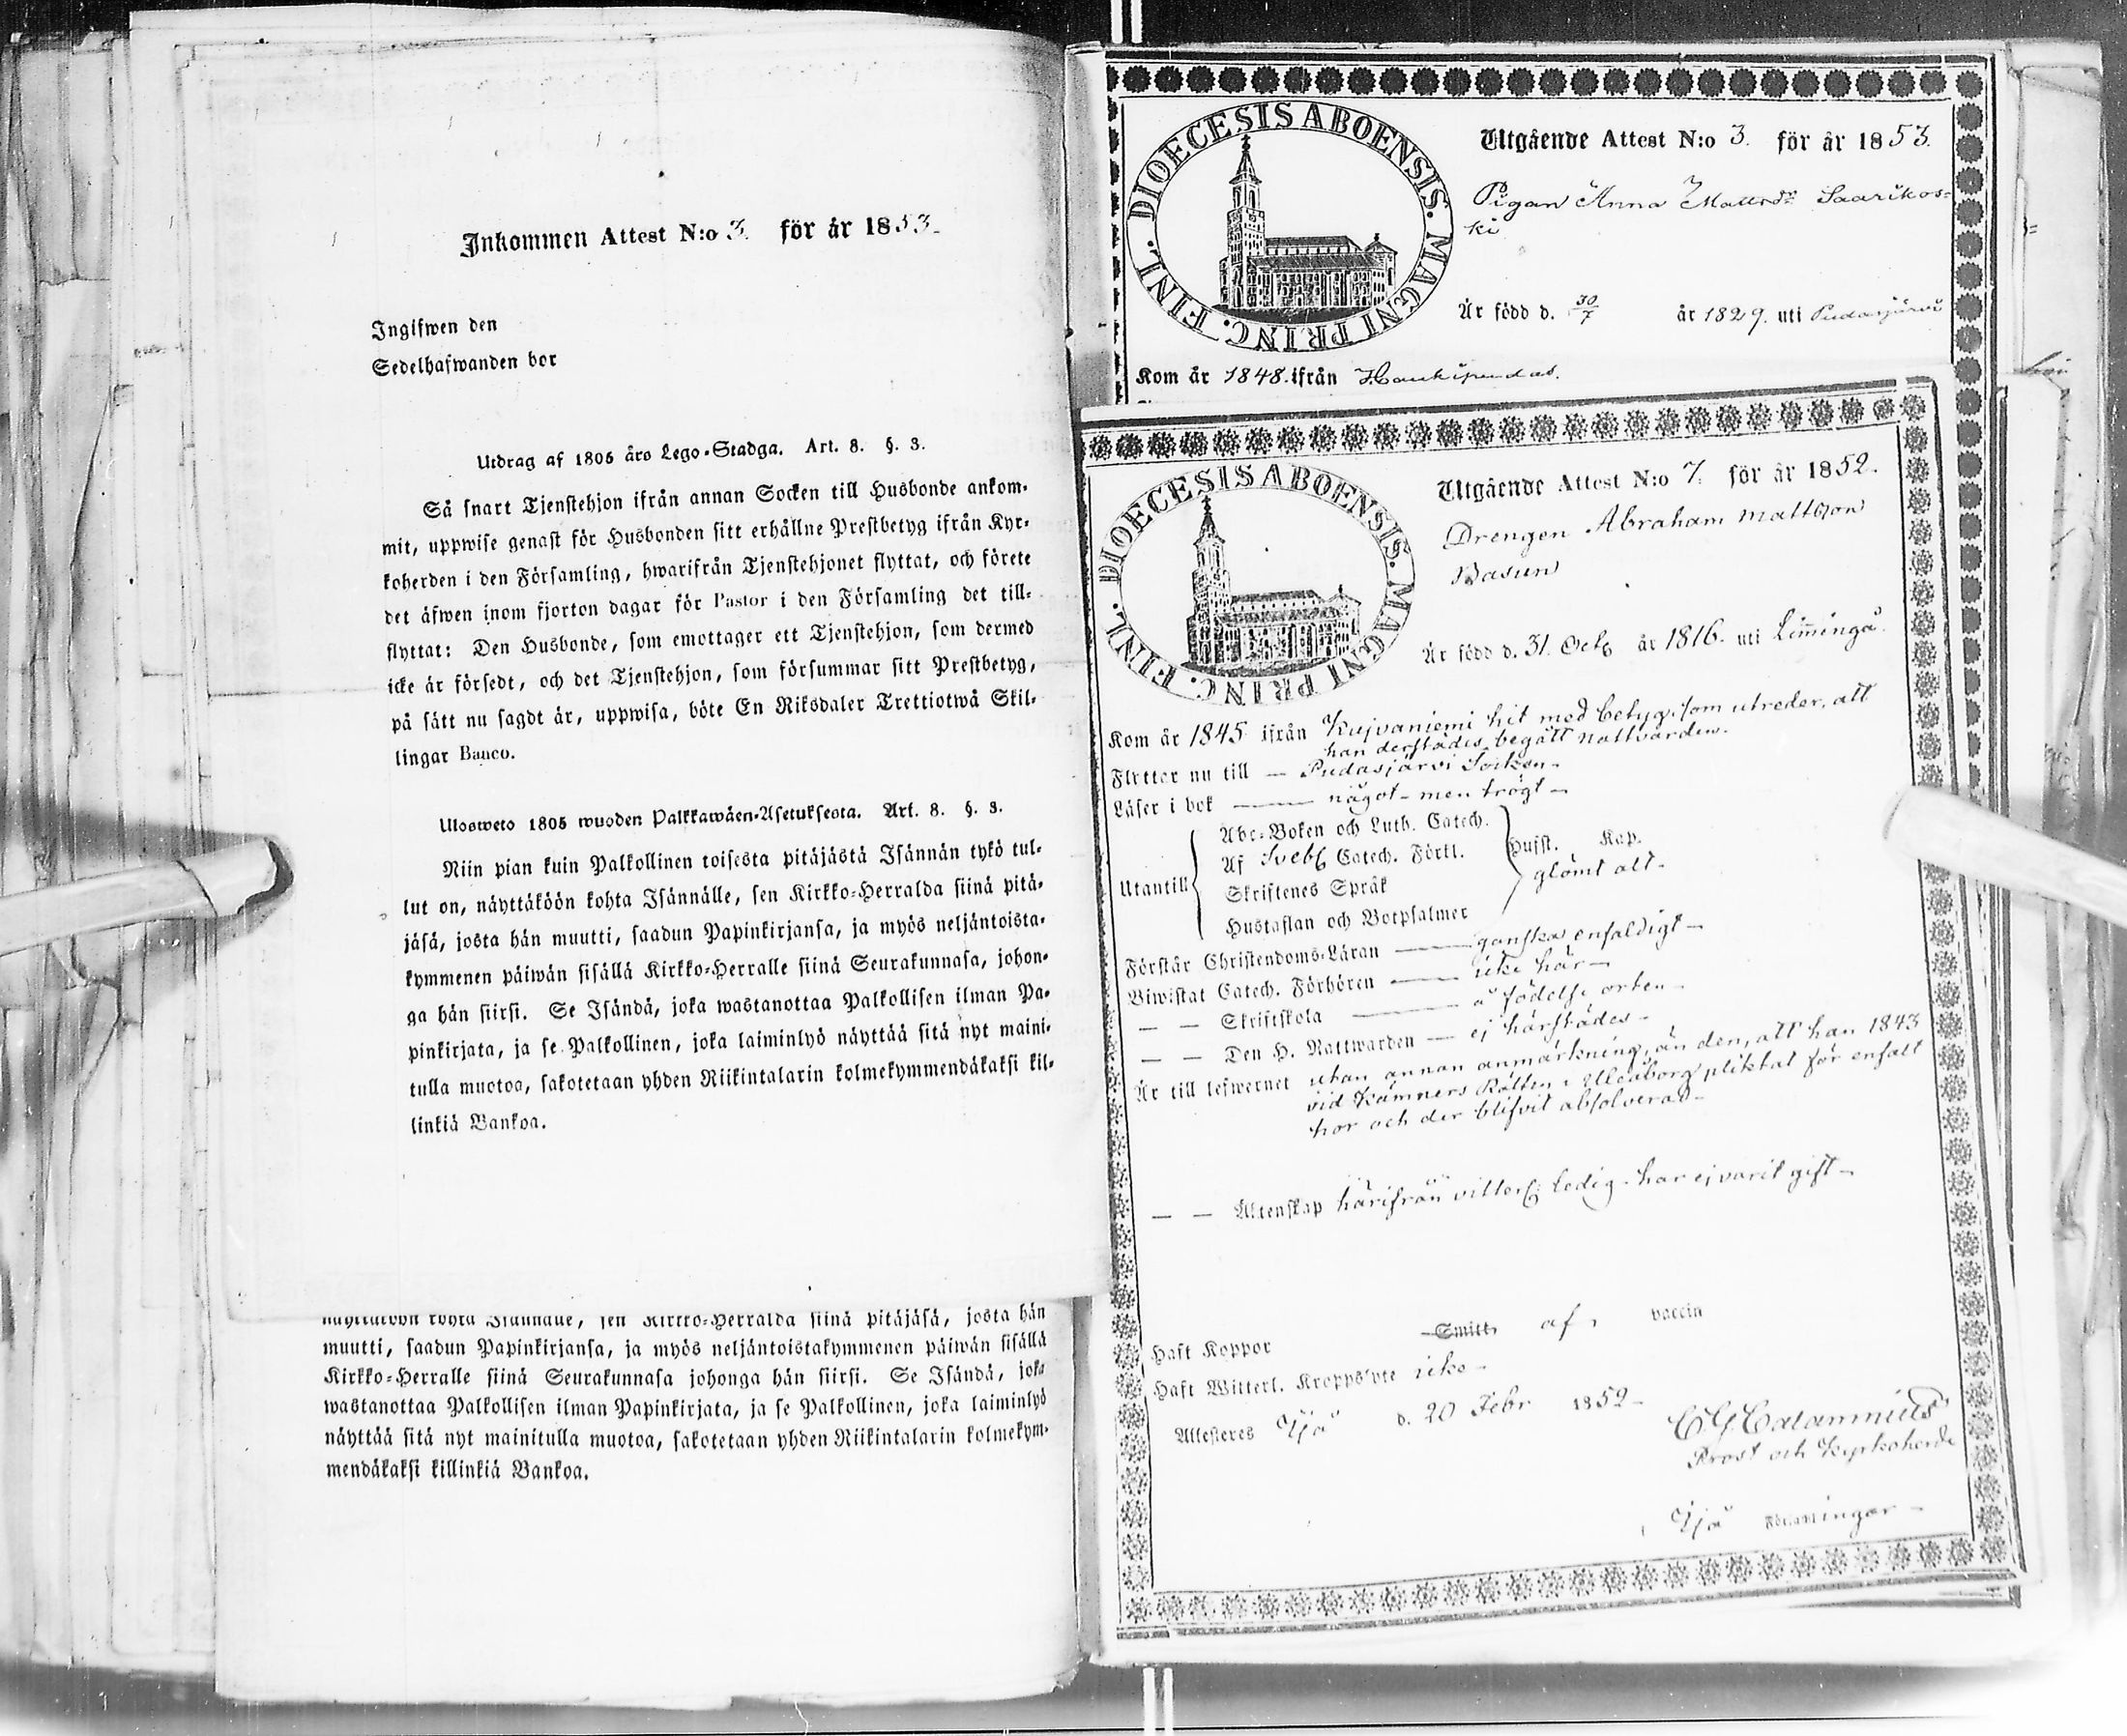 Inkommen Attest N:o 3. för år 1853.
Ingifwen den
Sedelhafwanden bor
Utdrag af 1805 års Lego-Stadga. Art. 8. §. 3.
Så snart Tjenstehjon ifrån annan Socken till Husbonde ankom-
mit, uppwise genast för Husbonden sitt erhållne Prestbetyg ifrån Kyr-
koherden i den Församling, hwarifrån Tjenstehjonet flyttat, och förete
det äfwen inom fjorton dagar för Pastor i den Församling det till-
flyttat: Den Husbonde, som emottager ett Tjenstehjon, som dermed
icke är försedt, och det Tjenstehjon, som försummar sitt Prestbetyg,
på sätt nu sagdt är, uppwisa, böte En Riksdaler Trettiotwå Skil-
lingar Banco.
Ulosweto 1805 wuoden Palkkawäen-Asetuksesta. Art. 8. §. 3.
Niin pian kuin Palkollinen toisesta pitäjästä Isännän tykö tul-
lut on, näyttäköön kohta Isännälle, sen Kirkko-Herralda siinä pitä-
jäsä, josta hän muutti, saadun Papinkirjansa, ja myös neljäntoista-
kymmenen päiwän sisällä Kirkko-Herralle siinä Seurakunnasa, johon-
ga hän siirsi. Se Isändä, joka wastanottaa Palkollisen ilman Pa-
pinkirjata, ja se Palkollinen, joka laiminlyö näyttää sitä nyt maini-
tulla muotoa, sakotetaan yhden Riikintalarin kolmekymmendäkaksi kil-
linkiä Bankoa.
näyttäköön kohta Isännälle, sen Kirkko-Herralda siinä pitäjäsä, josta hän
muutti, saadun Papinkirjansa, ja myös neljäntoistakymmenen päiwän sisällä
Kirkko-Herralle siinä Seurakunnasa johonga hän siirsi. Se Isändä, joka
wastanottaa Palkollisen ilman Papinkirjata, ja se Palkollinen, joka laiminlyö
näyttää sitä nyt mainitulla muotoa, sakotetaan yhden Riikintalarin kolmekym-
mendäkaksi killinkiä Bankoa.
DIOECESIS ABOENSIS. MAGNI PRINC. FINL.
Utgående Attest N:o 3. för år 1853.
Pigan Anna Mattsdr Saarikos-
ki
Är född d. 30/7 år 1829. uti Pudasjärvi
Kom år 1848. ifrån Haukipudas.
DIOECESIS ABOENSIS. MAGNI PRINC. FINL.
Utgående Attest N:o 7. för år 1852.
Drengen Abraham Mattsson
Basun
Är född d. 31. Octb år 1816. uti Limingå.
Kom år 1845 ifrån Kujvaniemi hit med betyg, som utreder, att
han derstädes begått nattvarden.
Flyttar nu till — Pudasjärvi Socken –
Läser i bok — något – men trögt –
Utantill
Abc-Boken och Luth. Catech.
Af Sveb. Catech. Förkl.
Skriftenes Språk
Hustaflan och Botpsalmer
Hufst. Kap.
glömt alt –
Förstår Christendoms-Läran — ganska enfaldigt –
Biwistat Catech. Förhören — icke här –
— — Skriftskola — å födelse orten –
— — Den H. Nattwarden — ej härstädes –
Är till lefwernet utan annan anmärkning, än den, att han 1843
vid Kämners Rätten i Uleåborg pliktat för enfalt
hor och der blifvit absolverad –
— — Äktenskap härifrån vitterl. ledig – har ej varit gift –
Haft Koppor Smitt af vaccin
Haft Witterl. Kroppslyte icke –
Attesteres Ijo d. 20 Febr 1852 –
C G Calamnius
Prost och Kyrkoherde
i Ijo Församlingar –